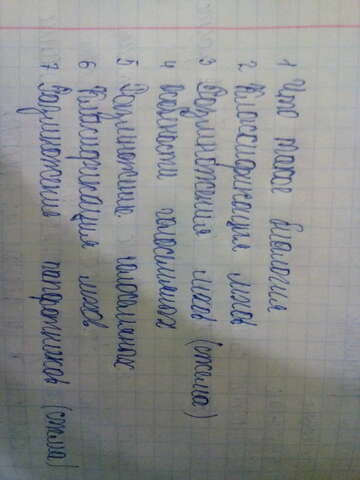 1 Что такое биология
2 Классификация мхов
3 Размножения мхов (схема)
4 голосеменных
5 Размножение голосеменных
6 Классификация мхов
7 Размножение папоротников (схема)